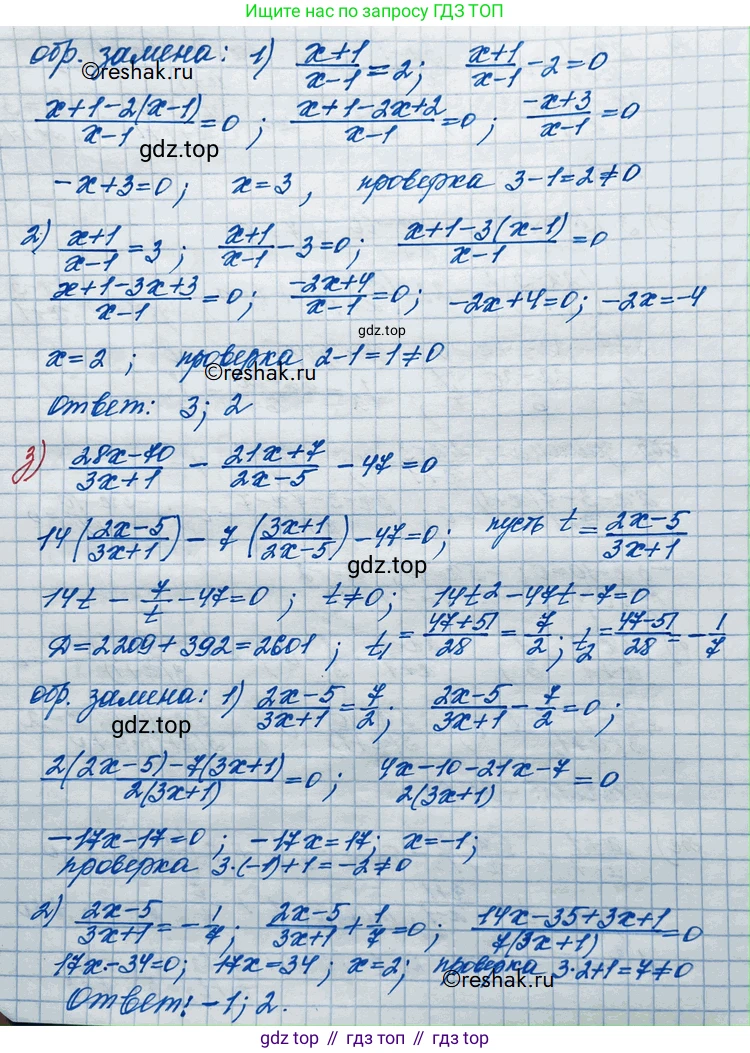 Ищите нас по запросу ГДЗ ТОП
обр. замена: 1) (x+1)/(x-1) = 2; (x+1)/(x-1) - 2 = 0
©reshak.ru
(x+1-2(x-1))/(x-1) = 0; (x+1-2x+2)/(x-1) = 0; (-x+3)/(x-1) = 0
gdz.top
-x+3=0; x=3, проверка 3-1=2≠0
2) (x+1)/(x-1) = 3; (x+1)/(x-1) - 3 = 0; (x+1-3(x-1))/(x-1) = 0
(x+1-3x+3)/(x-1) = 0; (-2x+4)/(x-1) = 0; -2x+4=0; -2x=-4
gdz.top
x=2; проверка 2-1=1≠0
©reshak.ru
Ответ: 3; 2
з) (28x-70)/(3x+1) - (21x+7)/(2x-5) - 47 = 0
14((2x-5)/(3x+1)) - 7((3x+1)/(2x-5)) - 47 = 0; пусть t = (2x-5)/(3x+1)
gdz.top
14t - 7/t - 47 = 0; t≠0; 14t² - 47t - 7 = 0
D=2209+392=2601; t₁ = (47+51)/28 = 7/2; t₂ = (47-51)/28 = -1/7
обр. замена: 1) (2x-5)/(3x+1) = 7/2; (2x-5)/(3x+1) - 7/2 = 0;
gdz.top
(2(2x-5)-7(3x+1))/(2(3x+1)) = 0; (4x-10-21x-7)/(2(3x+1)) = 0
-17x-17=0; -17x=17; x=-1;
проверка 3·(-1)+1=-2≠0
2) (2x-5)/(3x+1) = -1/7; (2x-5)/(3x+1) + 1/7 = 0; (14x-35+3x+1)/(7(3x+1)) = 0
17x-34=0; 17x=34; x=2; проверка 3·2+1=7≠0
©reshak.ru
Ответ: -1; 2.
gdz.top // гдз топ // gdz.top // гдз топ // gdz.top